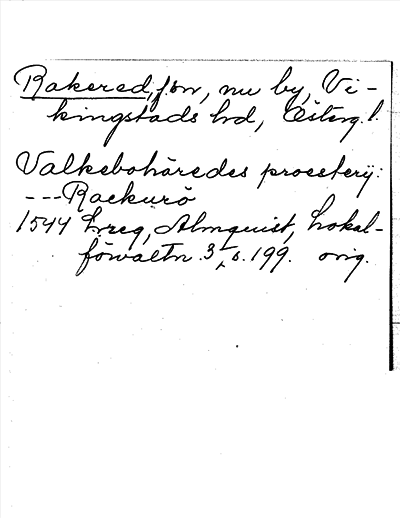 Rakered, f.ön, nu by, Vi-
kingstads hd, Österg.l.
Valkebohäredes proesterij:
---Raekurö
1544 Lreg, Almquist, Lokal-
förvaltn. 3, s. 199. orig.